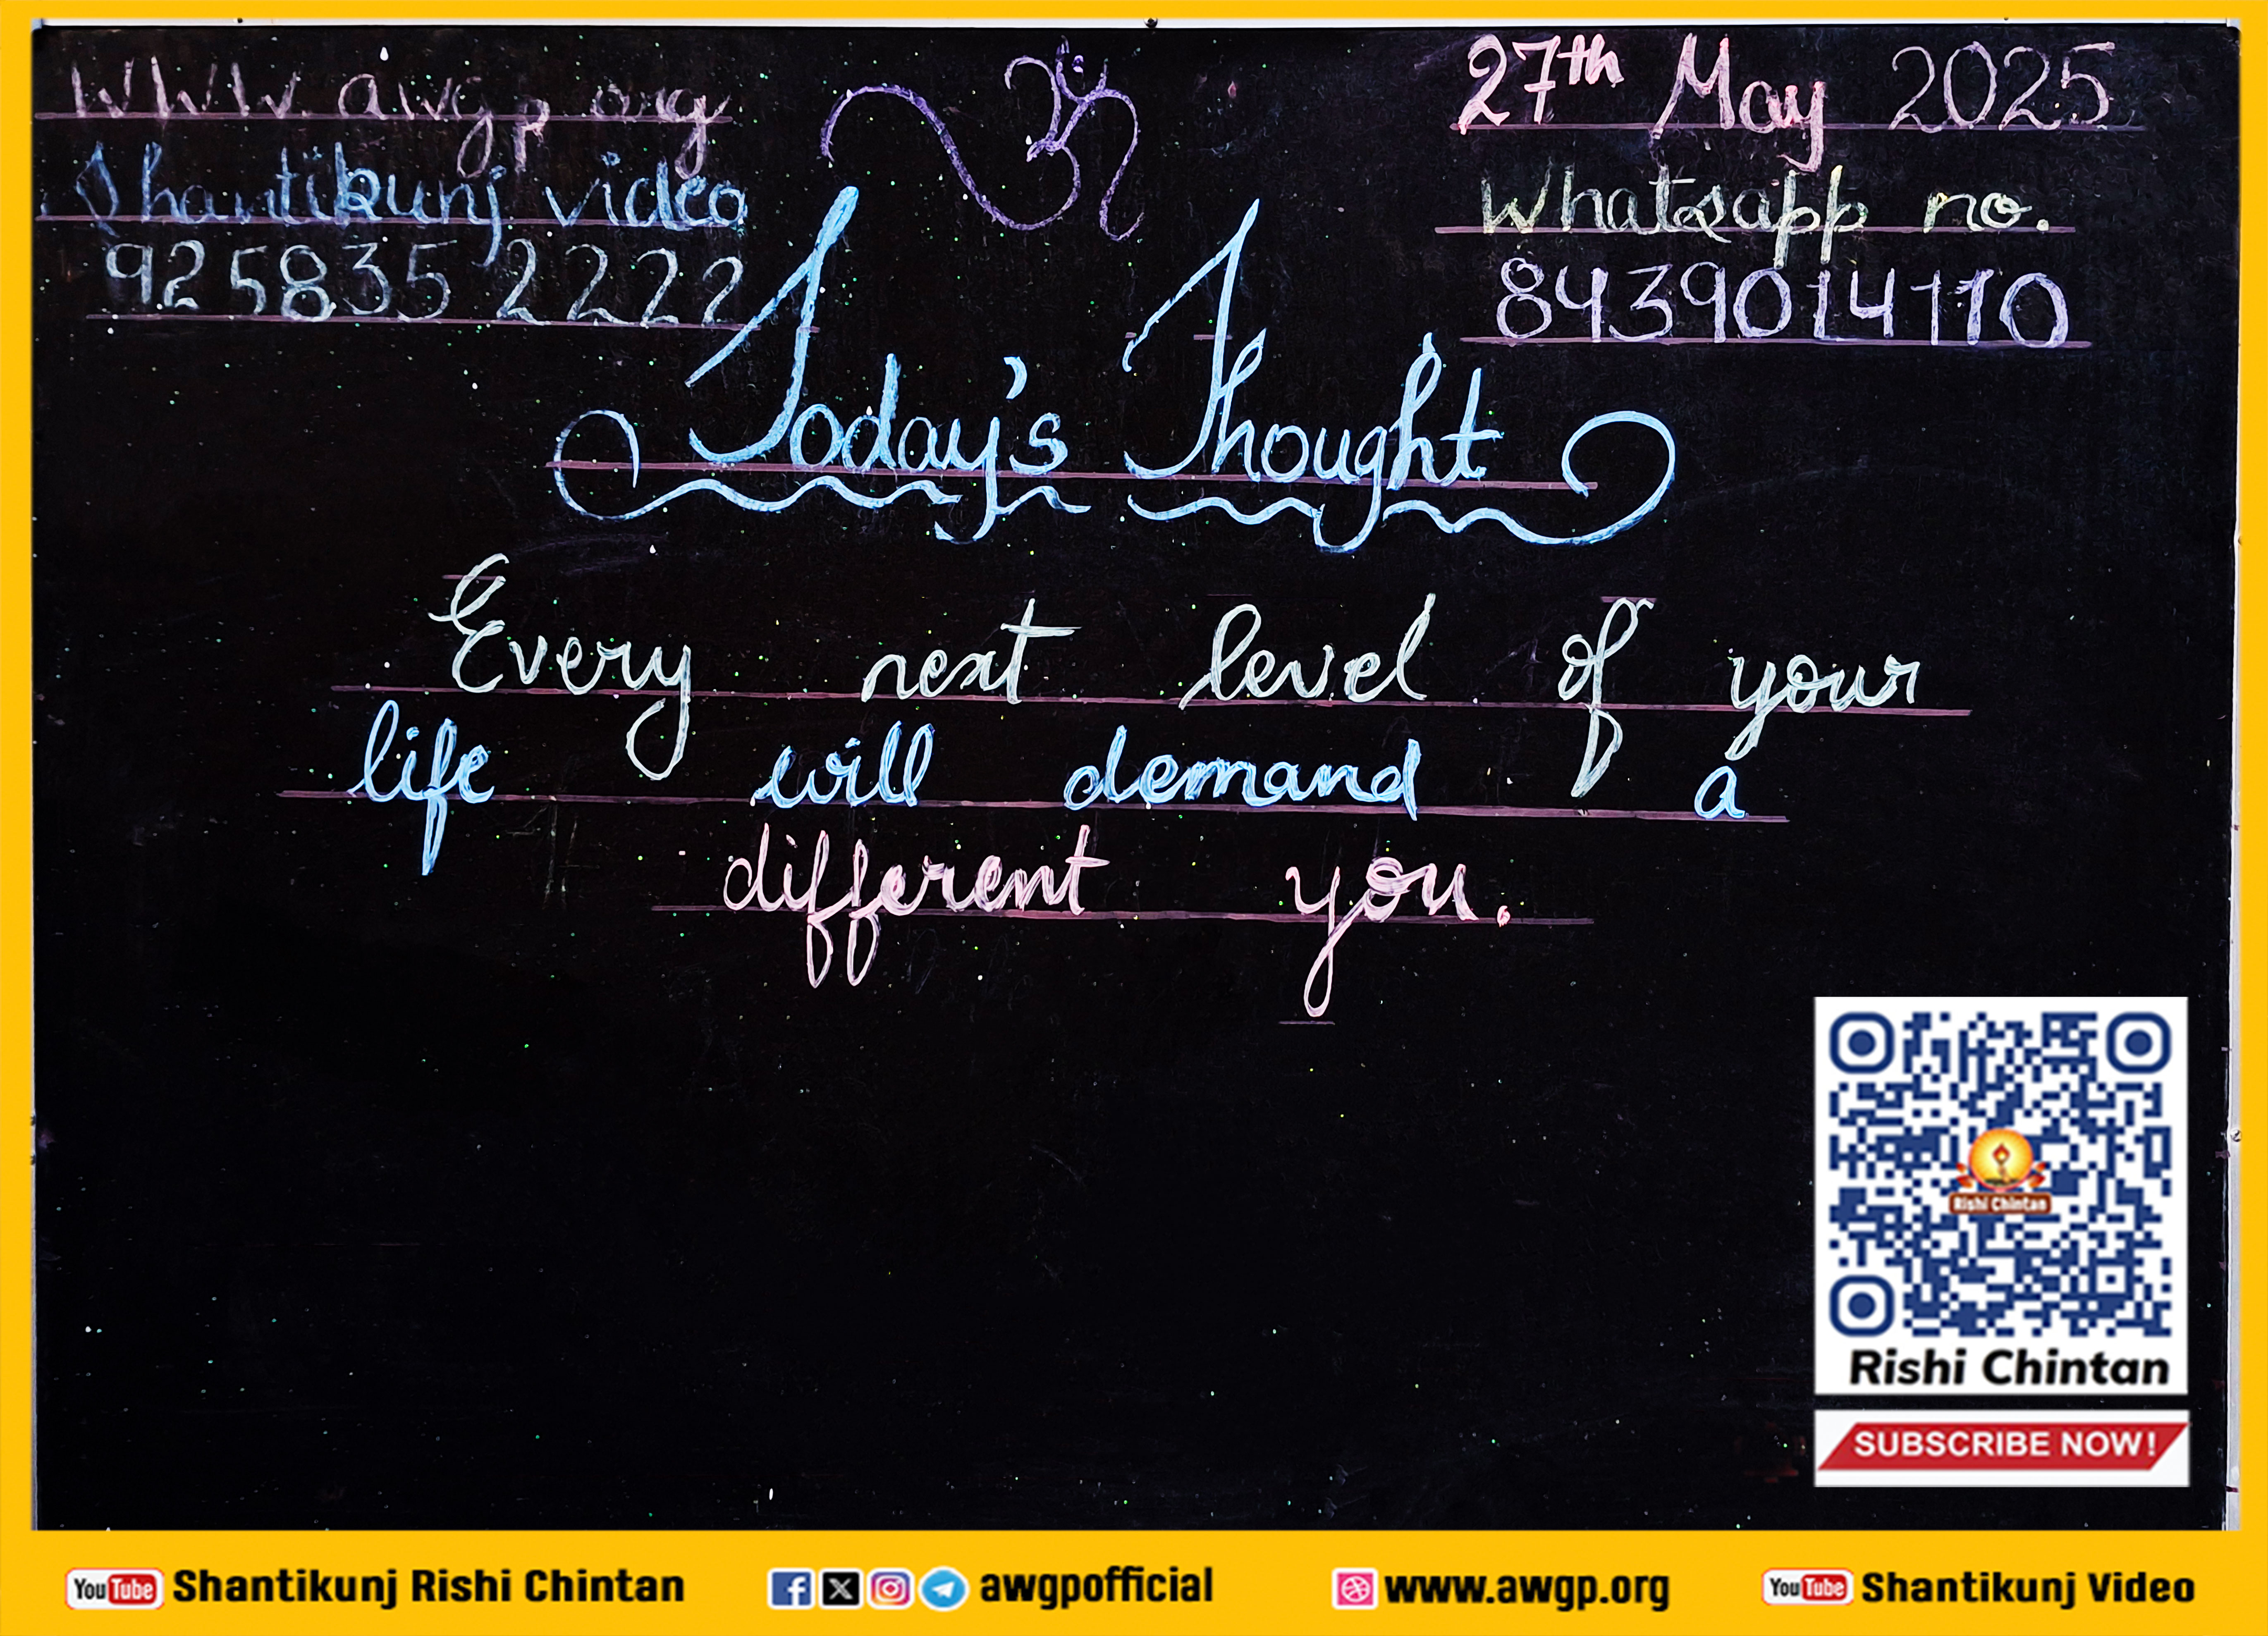 www.awgp.org
Shantikunj video
9258352222
ॐ
27th May 2025
Whatsapp no.
8439014110
Today's Thought
Every next level of your
life will demand a
different you.
Rishi Chintan
Rishi Chintan
SUBSCRIBE NOW!
YouTube Shantikunj Rishi Chintan
awgpofficial
www.awgp.org
YouTube Shantikunj Video